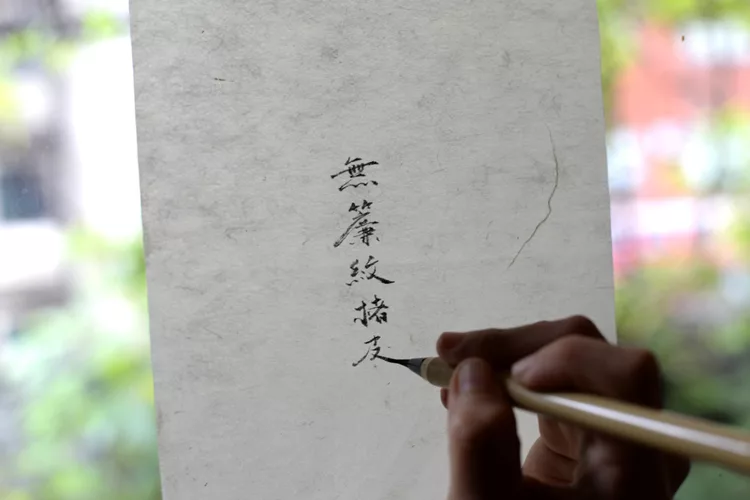 無簾紋楮皮